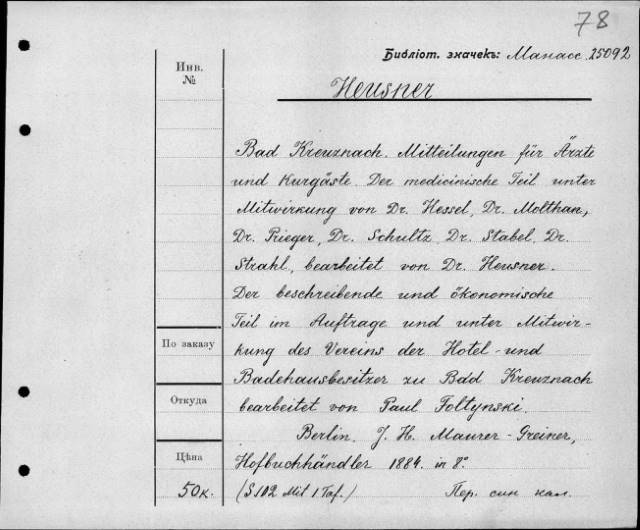 78
Библіот. значекъ: Манасс. 25092
Инв.
№
Heusner
Bad Kreuznach. Mitteilungen für Ärzte
und Kurgäste. Der medicinische Teil unter
Mitwirkung von Dr. Hessel, Dr. Molthan,
Dr. Prieger, Dr. Schultz, Dr. Stabel, Dr.
Strahl, bearbeitet von Dr. Heusner.
Der beschreibende und ökonomische
Teil im Auftrage und unter Mitwir-
kung des Vereins der Hotel- und
Badehausbesitzer zu Bad Kreuznach
bearbeitet von Paul Foltynski.
Berlin. J. H. Maurer-Greiner,
Hofbuchhändler 1884. in 8°
(S 102 Mit 1 Taf.) Пер. син кал.
По заказу
Откуда
Цѣна
50к.